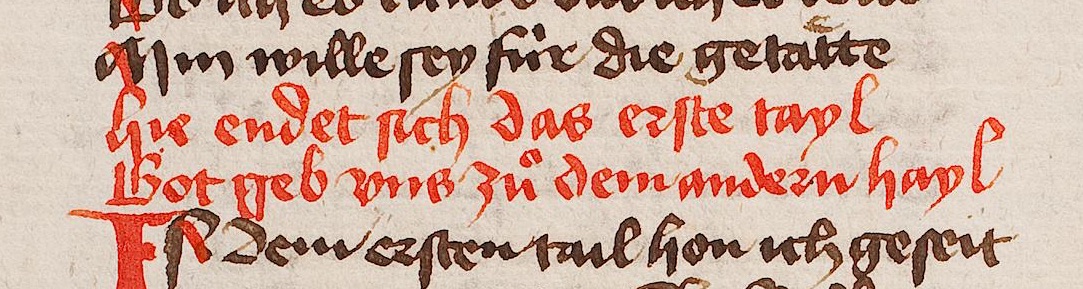 Min wille sey für die getātte
hie endet sich das erste tayl
Got geb vns zů dem andern hayl
IN dem ersten tail hon ich geseit